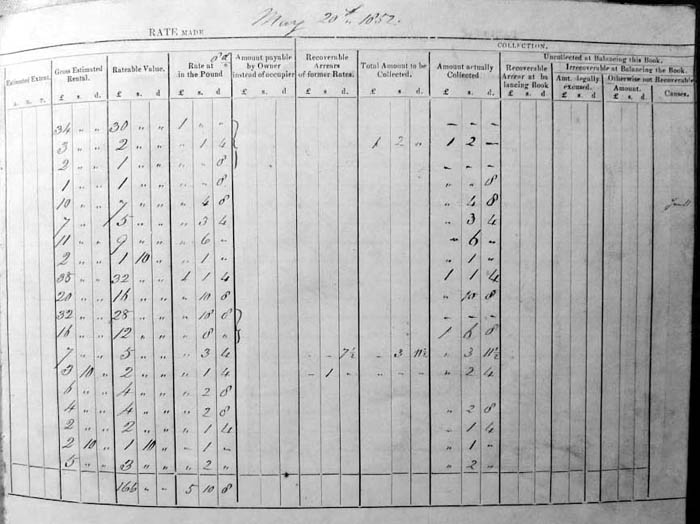 May 20th, 1852.
RATE MADE
COLLECTION.
Estimated Extent. Gross Estimated Rental. Rateable Value. Rate at 8d in the Pound Amount payable by Owner instead of occupier Recoverable Arrears of former Rates. Total Amount to be Collected. Amount actually Collected Uncollected at Balancing this Book.
Recoverable Arrear at balancing Book Irrecoverable at Balancing the Book.
Amt. legally excused. Otherwise not Recoverable
Amount. Causes.
A. R. P. £ s. d. £ s. d. £ s. d. £ s. d. £ s. d. £ s. d. £ s. d. £ s. d £ s. d £ s. d
34 " " 30 " " 1 " " - - -
3 " " 2 " " " 1 4 1 2 " 1 2 -
2 " " 1 " " " " 8 - - -
1 " " 1 " " " " 8 " " 8
10 " " 7 " " " 4 8 " 4 8
7 " " 5 " " " 3 4 " 3 4
11 " " 9 " " " 6 " " 6 "
2 " " 1 10 " " 1 " " 1 "
38 " " 32 " " 1 1 4 1 1 4
20 " " 16 " " " 10 8 " 10 8
32 " " 28 " " " 18 8 - - -
16 " " 12 " " " 8 " 1 6 8
7 " " 5 " " " 3 4 - - 7½ - 3 11½ " 3 11½
3 10 " 2 " " " 1 4 - 1 " " 2 4
6 " " 4 " " " 2 8
4 " " 4 " " " 2 8 " 2 8
2 " " 2 " " " 1 4 " 1 4
2 10 " 1 10 " - 1 " " 1 "
5 " " 3 " " " 2 " " 2 "
166 " " 5 10 8